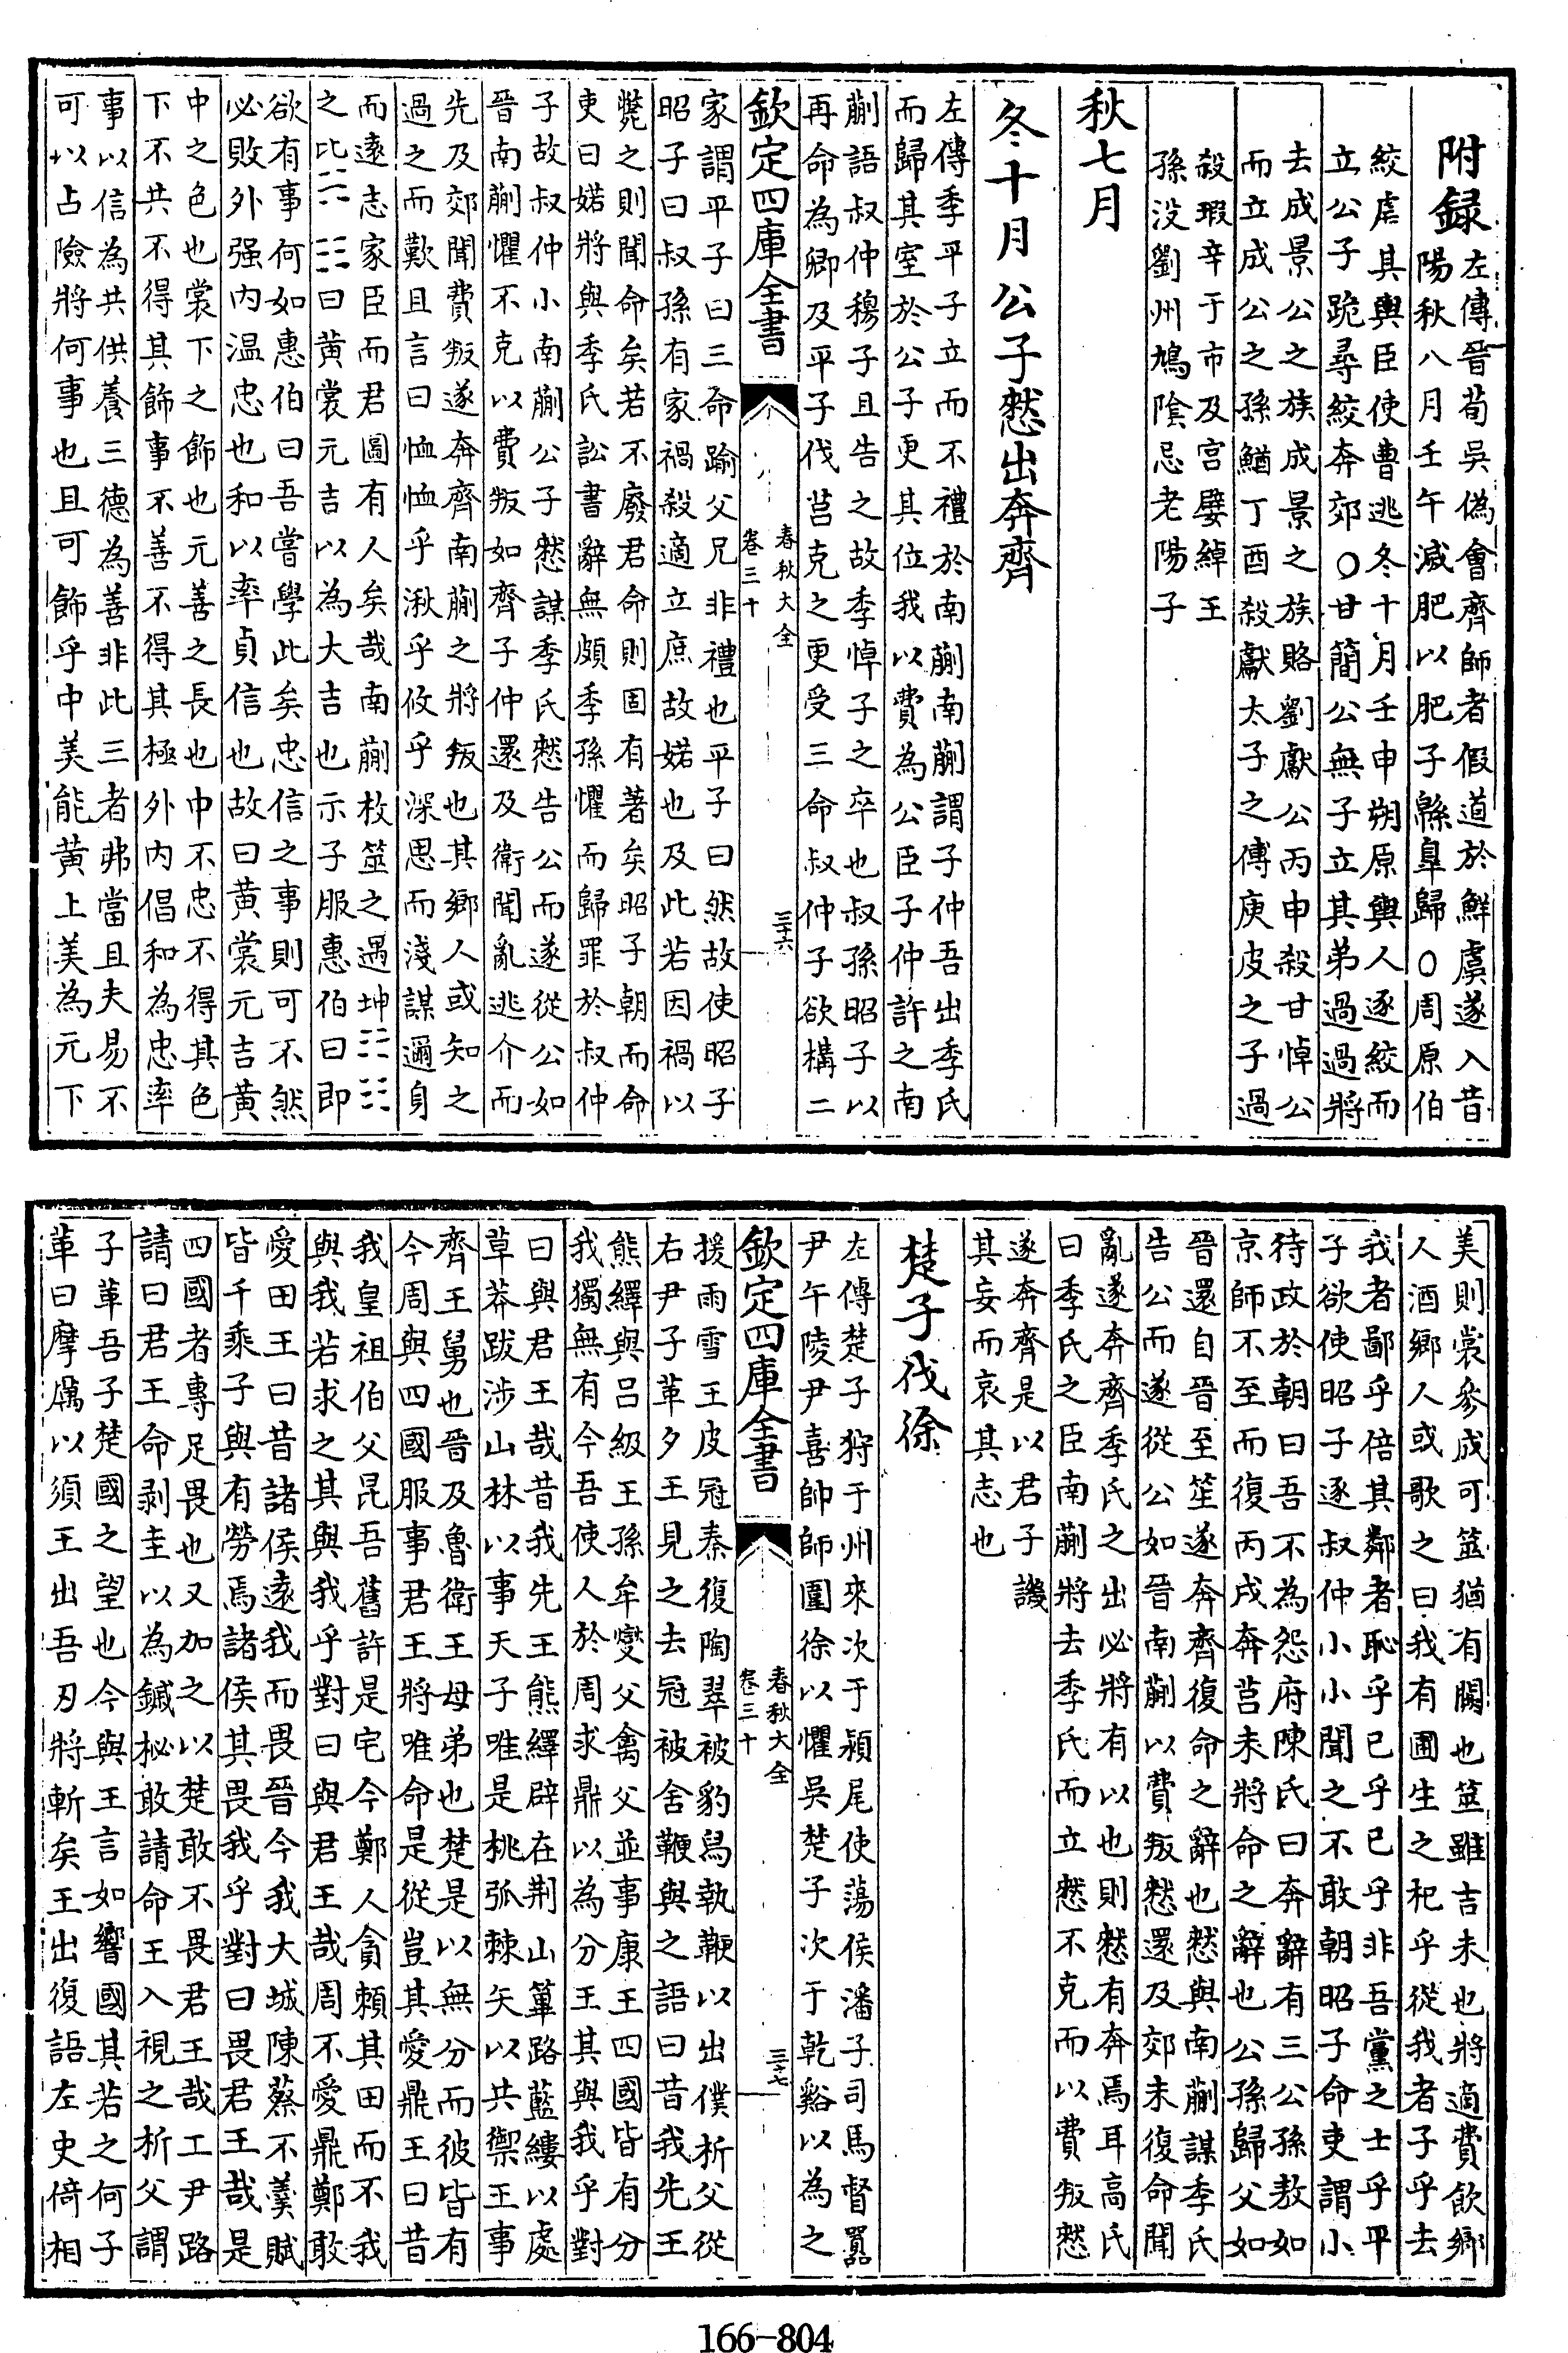 附録
左傳晉荀吳偽會齊師者假道於鮮虞遂入昔
陽秋八月壬午滅肥以肥子緜臯歸○周原伯
絞虐其輿臣使曹逃冬十月壬申朔原輿人逐絞而
立公子跪尋絞奔郊○甘簡公無子立其弟過過將
去成景公之族成景之族賂劉獻公丙申殺甘悼公
而立成公之孫鰌丁酉殺獻太子之傅庾皮之子過
殺瑕辛于市及宮嬖綽王
孫没劉州鳩陰忌老陽子
秋七月
冬十月公子憖出奔齊
左傳季平子立而不禮於南蒯南蒯謂子仲吾出季氏
而歸其室於公子更其位我以費為公臣子仲許之南
蒯語叔仲穆子且告之故季悼子之卒也叔孫昭子以
再命為卿及平子伐莒克之更受三命叔仲子欲構二
欽定四庫全書
春秋大全
卷三十
三十六
家謂平子曰三命踰父兄非禮也平子曰然故使昭子
昭子曰叔孫有家禍殺適立庶故婼也及此若因禍以
斃之則聞命矣若不廢君命則固有著矣昭子朝而命
吏曰婼將與季氏訟書辭無頗季孫懼而歸罪於叔仲
子故叔仲小南蒯公子憖謀季氏憖告公而遂從公如
晉南蒯懼不克以費叛如齊子仲還及衛聞亂逃介而
先及郊聞費叛遂奔齊南蒯之將叛也其鄉人或知之
過之而歎且言曰恤恤乎湫乎攸乎深思而淺謀邇身
而遠志家臣而君圖有人矣哉南蒯枚筮之遇坤☷☷
之比☵☷曰黄裳元吉以為大吉也示子服惠伯曰即
欲有事何如惠伯曰吾嘗學此矣忠信之事則可不然
必敗外强内温忠也和以率貞信也故曰黄裳元吉黄
中之色也裳下之飾也元善之長也中不忠不得其色
下不共不得其飾事不善不得其極外内倡和為忠率
事以信為共供養三德為善非此三者弗當且夫易不
可以占險將何事也且可飾乎中美能黄上美為元下
美則裳參成可筮猶有闕也筮雖吉未也將適費飲鄉
人酒鄉人或歌之曰我有圃生之杞乎從我者子乎去
我者鄙乎倍其鄰者恥乎已乎已乎非吾黨之士乎平
子欲使昭子逐叔仲小小聞之不敢朝昭子命吏謂小
待政於朝曰吾不為怨府陳氏曰奔辭有三公孫敖如
京師不至而復丙戌奔莒未將命之辭也公孫歸父如
晉還自晉至笙遂奔齊復命之辭也憖與南蒯謀季氏
告公而遂從公如晉南蒯以費叛憖還及郊未復命聞
亂遂奔齊季氏之出必將有以也則憖有奔焉耳高氏
曰季氏之臣南蒯將去季氏而立憖不克而以費叛憖
遂奔齊是以君子譏
其妄而哀其志也
楚子伐徐
左傳楚子狩于州來次于潁尾使蕩侯潘子司馬督嚚
尹午陵尹喜帥師圍徐以懼吳楚子次于乾谿以為之
欽定四庫全書
春秋大全
卷三十
三十七
援雨雪王皮冠秦復陶翠被豹舄執鞭以出僕析父從
右尹子革夕王見之去冠被舍鞭與之語曰昔我先王
熊繹與呂級王孫牟燮父禽父並事康王四國皆有分
我獨無有今吾使人於周求鼎以為分王其與我乎對
曰與君王哉昔我先王熊繹辟在荆山篳路藍縷以處
草莽跋涉山林以事天子唯是桃弧棘矢以共禦王事
齊王舅也晉及魯衛王母弟也楚是以無分而彼皆有
今周與四國服事君王將唯命是從豈其愛鼎王曰昔
我皇祖伯父昆吾舊許是宅今鄭人貪頼其田而不我
與我若求之其與我乎對曰與君王哉周不愛鼎鄭敢
愛田王曰昔諸侯遠我而畏晉今我大城陳蔡不羹賦
皆千乘子與有勞焉諸侯其畏我乎對曰畏君王哉是
四國者專足畏也又加之以楚敢不畏君王哉工尹路
請曰君王命剥圭以為鏚柲敢請命王入視之析父謂
子革吾子楚國之望也今與王言如響國其若之何子
革曰摩厲以須王出吾刃將斬矣王出復語左史倚相
166-804